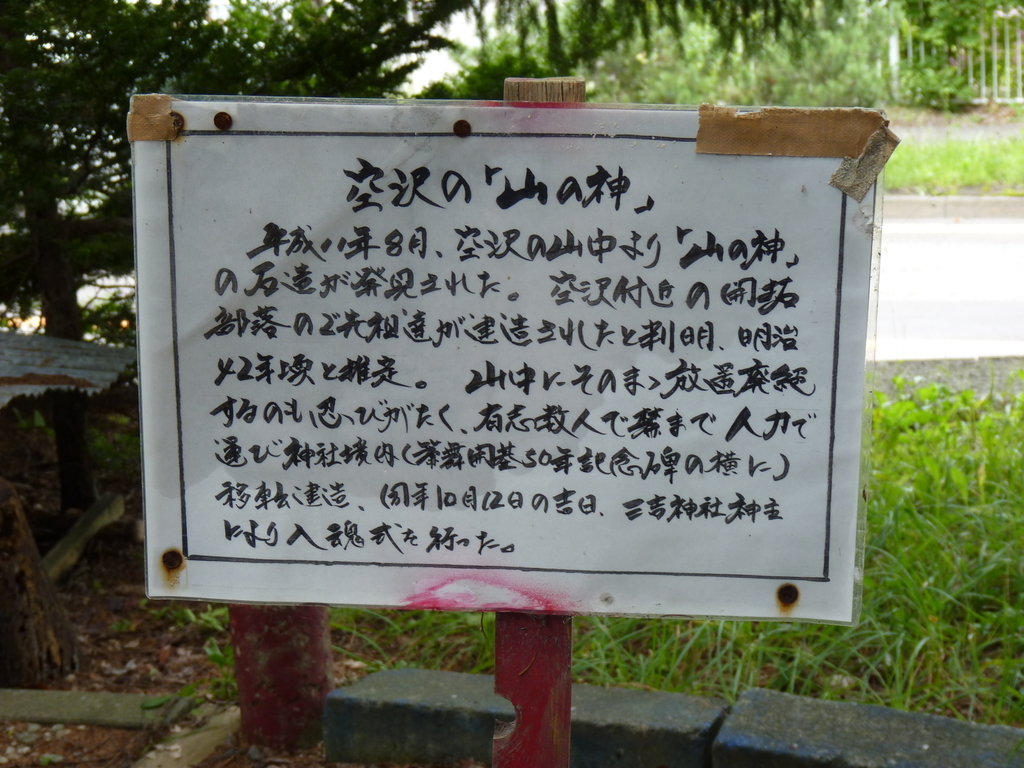 空沢の「山の神」
平成八年8月、空沢の山中より「山の神」
の石造が発見された。 空沢付近の開拓
部落のご先祖達が建造されたと判明、明治
42年頃と推定。 山中にそのまゝ放置廃絶
するのも忍びがたく、有志数人で幕まで人力で
運び神社境内(幕舞開基50年記念碑の横に)
移転建造、同年10月12日の吉日、三吉神社神主
により入魂式を行った。